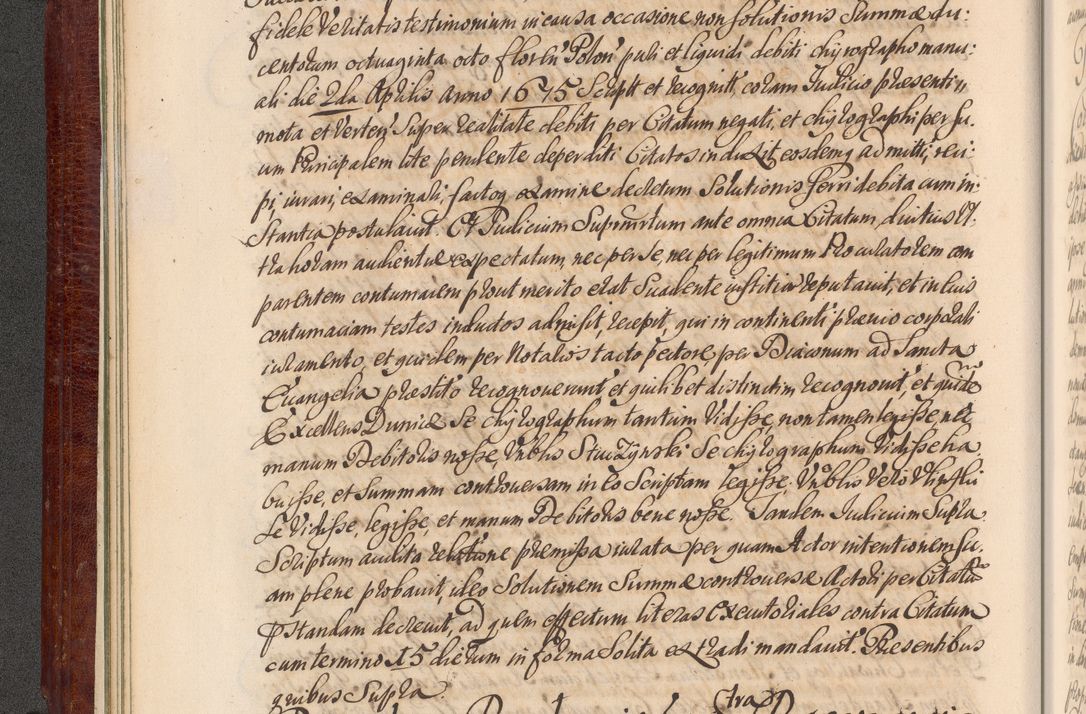 fidele Veritatis testimonium in causa occasione non solutionis Summæ du:
centorum octuaginta octo floren' Polon' puli et liquidi debiti chyrographo manu:
ali die 2da Aprilis Anno 1675 Script et recognit, coram Judicio præsenti
mota et Verten' Super realitate debiti per Citatum negati, et chyrographi per su.
um Principalem lite pendente deperditi Citatos induxit, eosdemq admitti, reci
pi, iurari, examinari, factoq examine decretum Solutionis ferri debita cum in:
stantia postulavit. Et Judicium Suprasrtum ante omnia Citatum diutius ul.
tra horam audientiæ expectatum, nec per se, nec per legitimum Procuratorem com
parentem contumacem prout merito erat Suadente iustitia reputavit, et in eius
contumaciam testes inductos admisit, recepit, qui in continenti prævio corporali
iuramento, et quidem per Notarios tacto pectore, per Diaconum ad Sancta
Evangelia præstito recognoverunt, et quilibet distinctim recognovit, et quidem
Excellens Dunicz Se chyrographum tantum Vidisse, non tamen legisse, nec
manum Debitoris nosse, Vnblis Stuczynski Se chyrographum Vidisse ha
buisse, et Summam controversam in eo Scriptam legisse. Vnblis Vero
Se Vidisse, legisse, et manum Debitoris bene nosse. Tandem Judicium Supra
Scriptum audita relatione præmissa iurata per quam Actor intentionem su.
am plene probavit, ideo Solutionem Summæ controversæ Actori per Citatum
præstandam decrevit, ad quem effectum literas Executoriales contra Citatum
cum termino 15 dierum in forma Solita extradi mandavit. Præsentibus
quibus Supra.